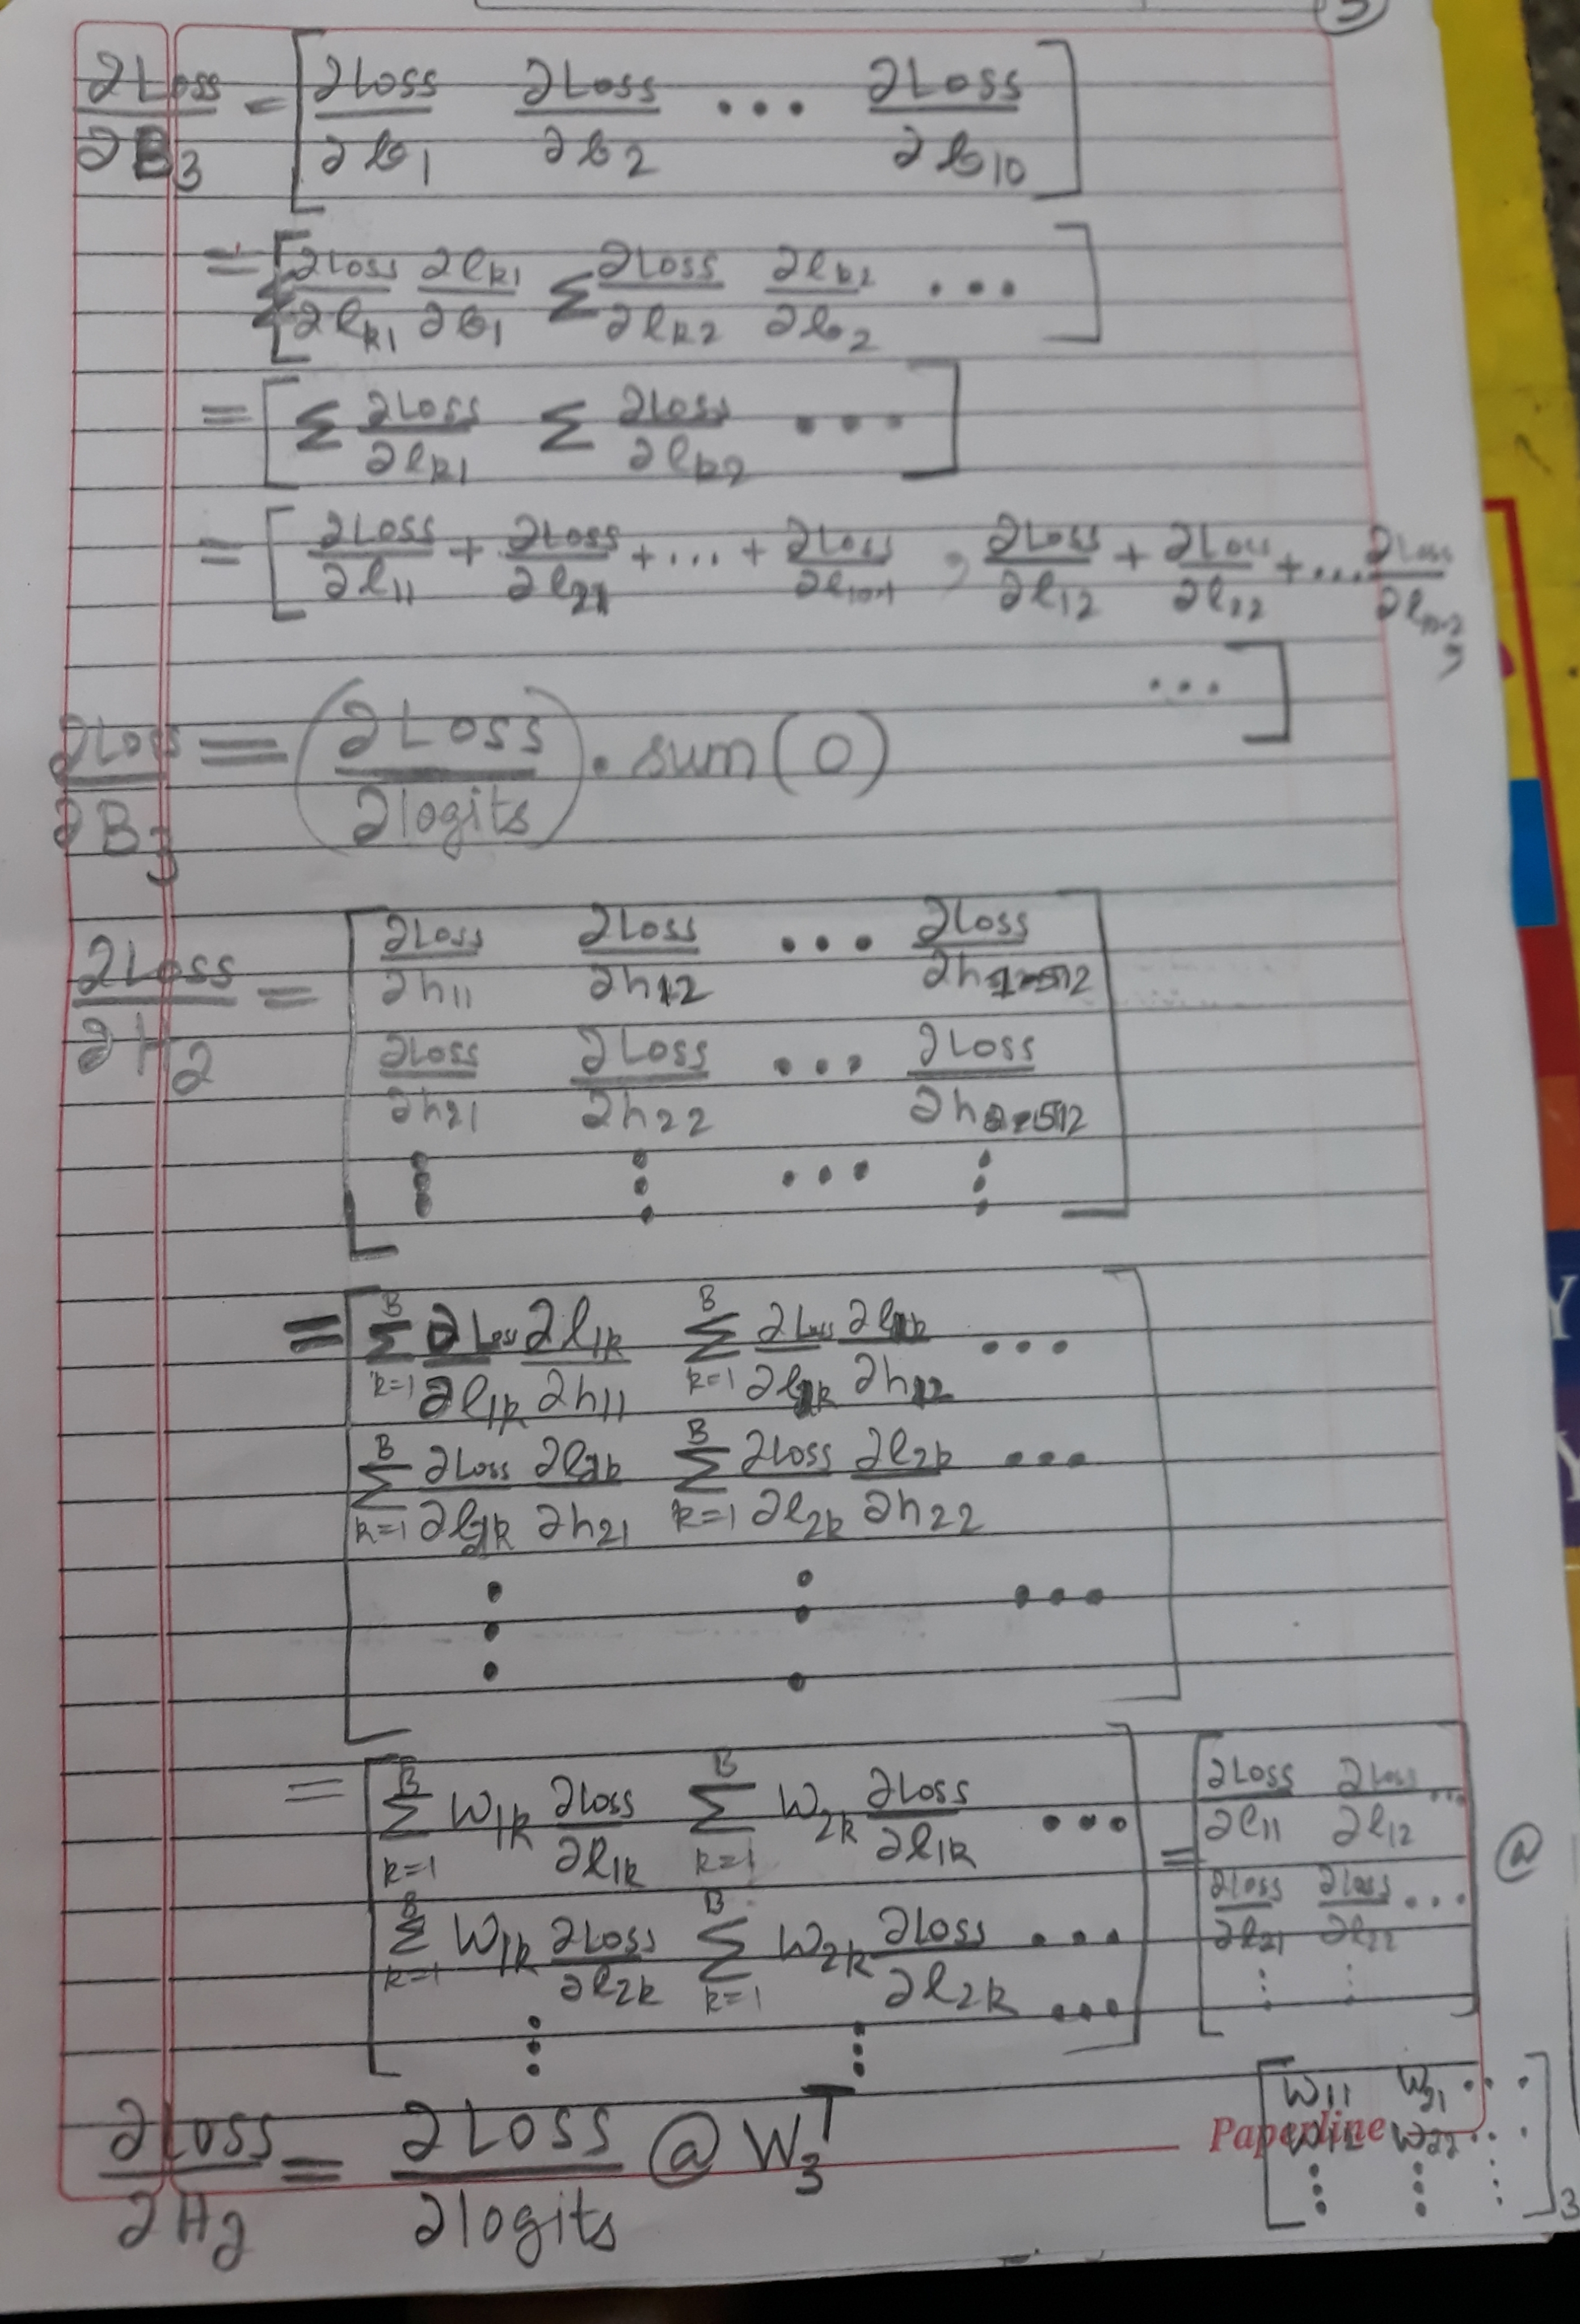 3
∂Loss/∂B₃ = [ ∂Loss/∂b₁ ∂Loss/∂b₂ ... ∂Loss/∂b₁₀ ]
= [ Σ ∂Loss/∂lₖ₁ ∂lₖ₁/∂b₁ Σ ∂Loss/∂lₖ₂ ∂lₖ₂/∂b₂ ... ]
= [ Σ ∂Loss/∂lₖ₁ Σ ∂Loss/∂lₖ₂ ... ]
= [ ∂Loss/∂l₁₁ + ∂Loss/∂l₂₁ + ... + ∂Loss/∂l , ∂Loss/∂l₁₂ + ∂Loss/∂l₂₂ + ... ∂Loss/∂l ,
... ]
∂Loss/∂B₃ = (∂Loss/∂logits).sum(0)
∂Loss/∂H₂ = [ ∂Loss/∂h₁₁ ∂Loss/∂h₁₂ ... ∂Loss/∂h₁₋₅₁₂
∂Loss/∂h₂₁ ∂Loss/∂h₂₂ ... ∂Loss/∂h₂₋₅₁₂
⋮ ⋮ ... ⋮ ]
= [ Σₖ₌₁ᴮ ∂Loss/∂l₁ₖ ∂l₁ₖ/∂h₁₁ Σₖ₌₁ᴮ ∂Loss/∂l₁ₖ ∂l₁ₖ/∂h₁₂ ...
Σₖ₌₁ᴮ ∂Loss/∂l₂ₖ ∂l₂ₖ/∂h₂₁ Σₖ₌₁ᴮ ∂Loss/∂l₂ₖ ∂l₂ₖ/∂h₂₂ ...
⋮ ⋮ ... ]
= [ Σₖ₌₁ᴮ W₁ₖ ∂Loss/∂l₁ₖ Σₖ₌₁ᴮ W₂ₖ ∂Loss/∂l₁ₖ ... ] = [ ∂Loss/∂l₁₁ ∂Loss/∂l₁₂ ... ] @
[ Σₖ₌₁ᴮ W₁ₖ ∂Loss/∂l₂ₖ Σₖ₌₁ᴮ W₂ₖ ∂Loss/∂l₂ₖ ... ] [ ∂Loss/∂l₂₁ ∂Loss/∂l₂₂ ... ]
⋮ ⋮ ... ⋮ ⋮
[ W₁₁ W₂₁ ...
W₁₂ W₂₂ ...
⋮ ⋮ ⋮ ]₃
∂Loss/∂H₂ = ∂Loss/∂logits @ W₃ᵀ
Paperline